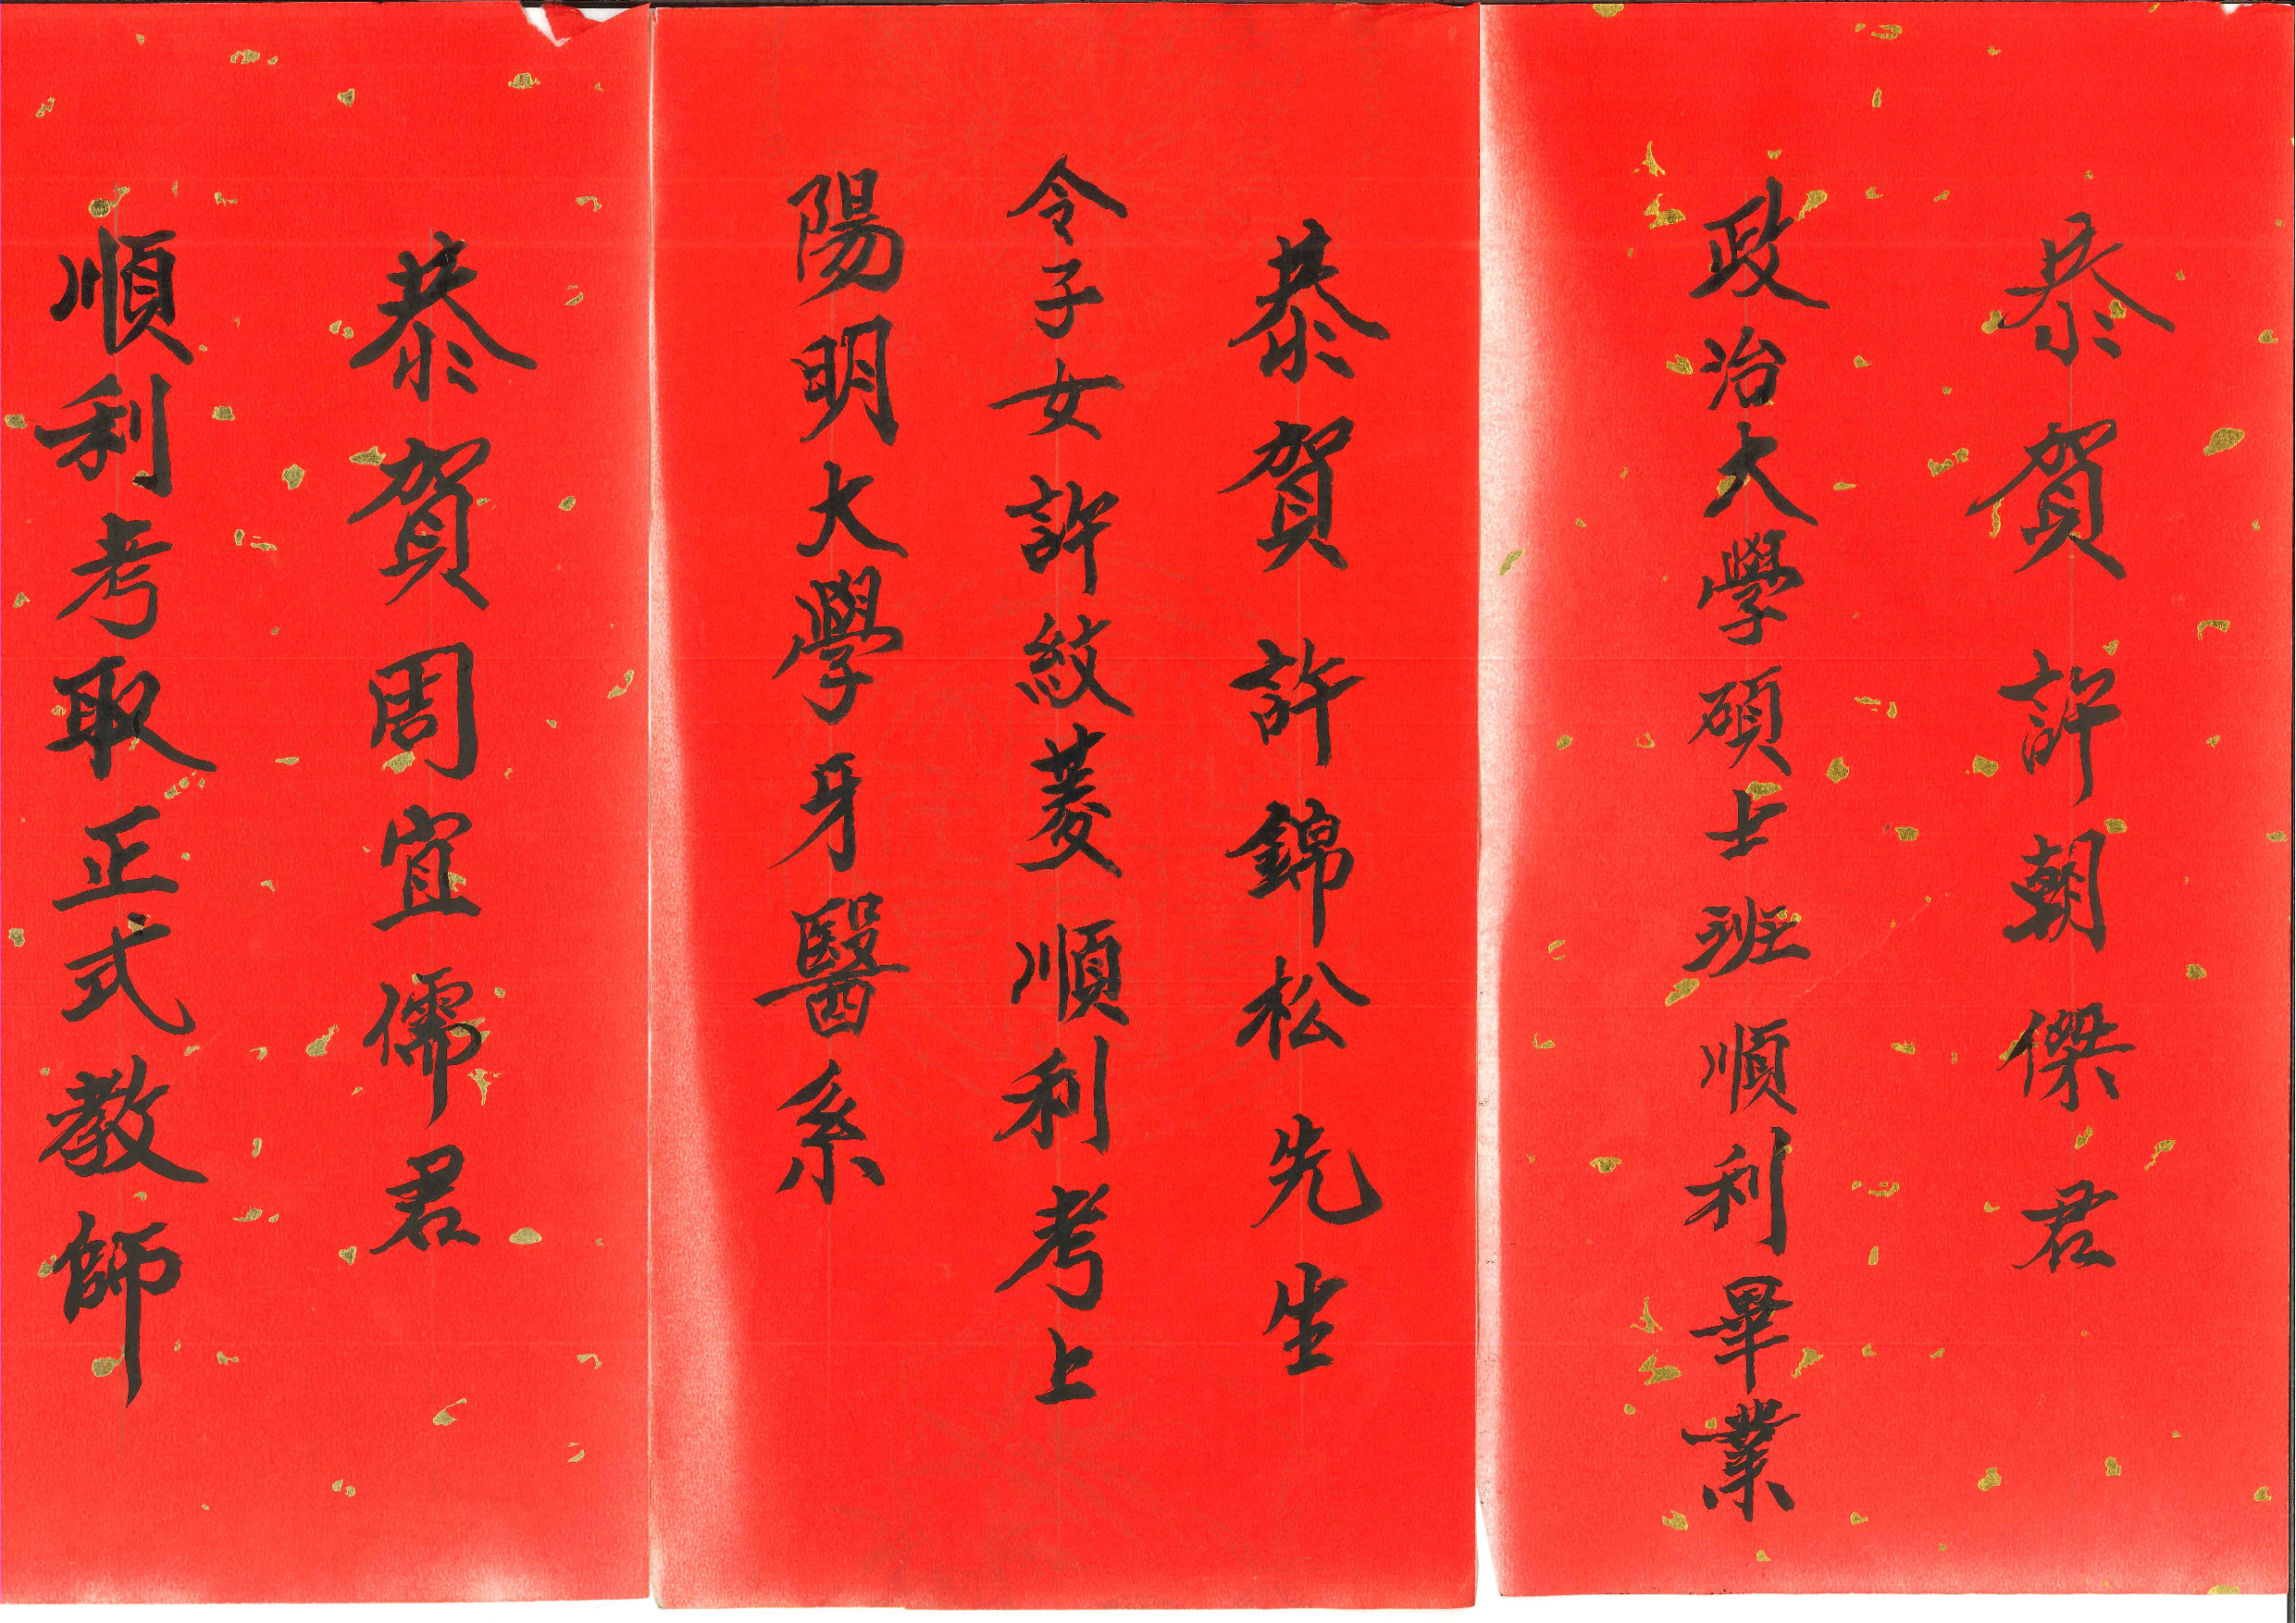 恭賀許朝傑君
政治大學碩士班順利畢業
恭賀許錦松先生
令子女許紋菱順利考上
陽明大學牙醫系
恭賀周宜儒君
順利考取正式教師